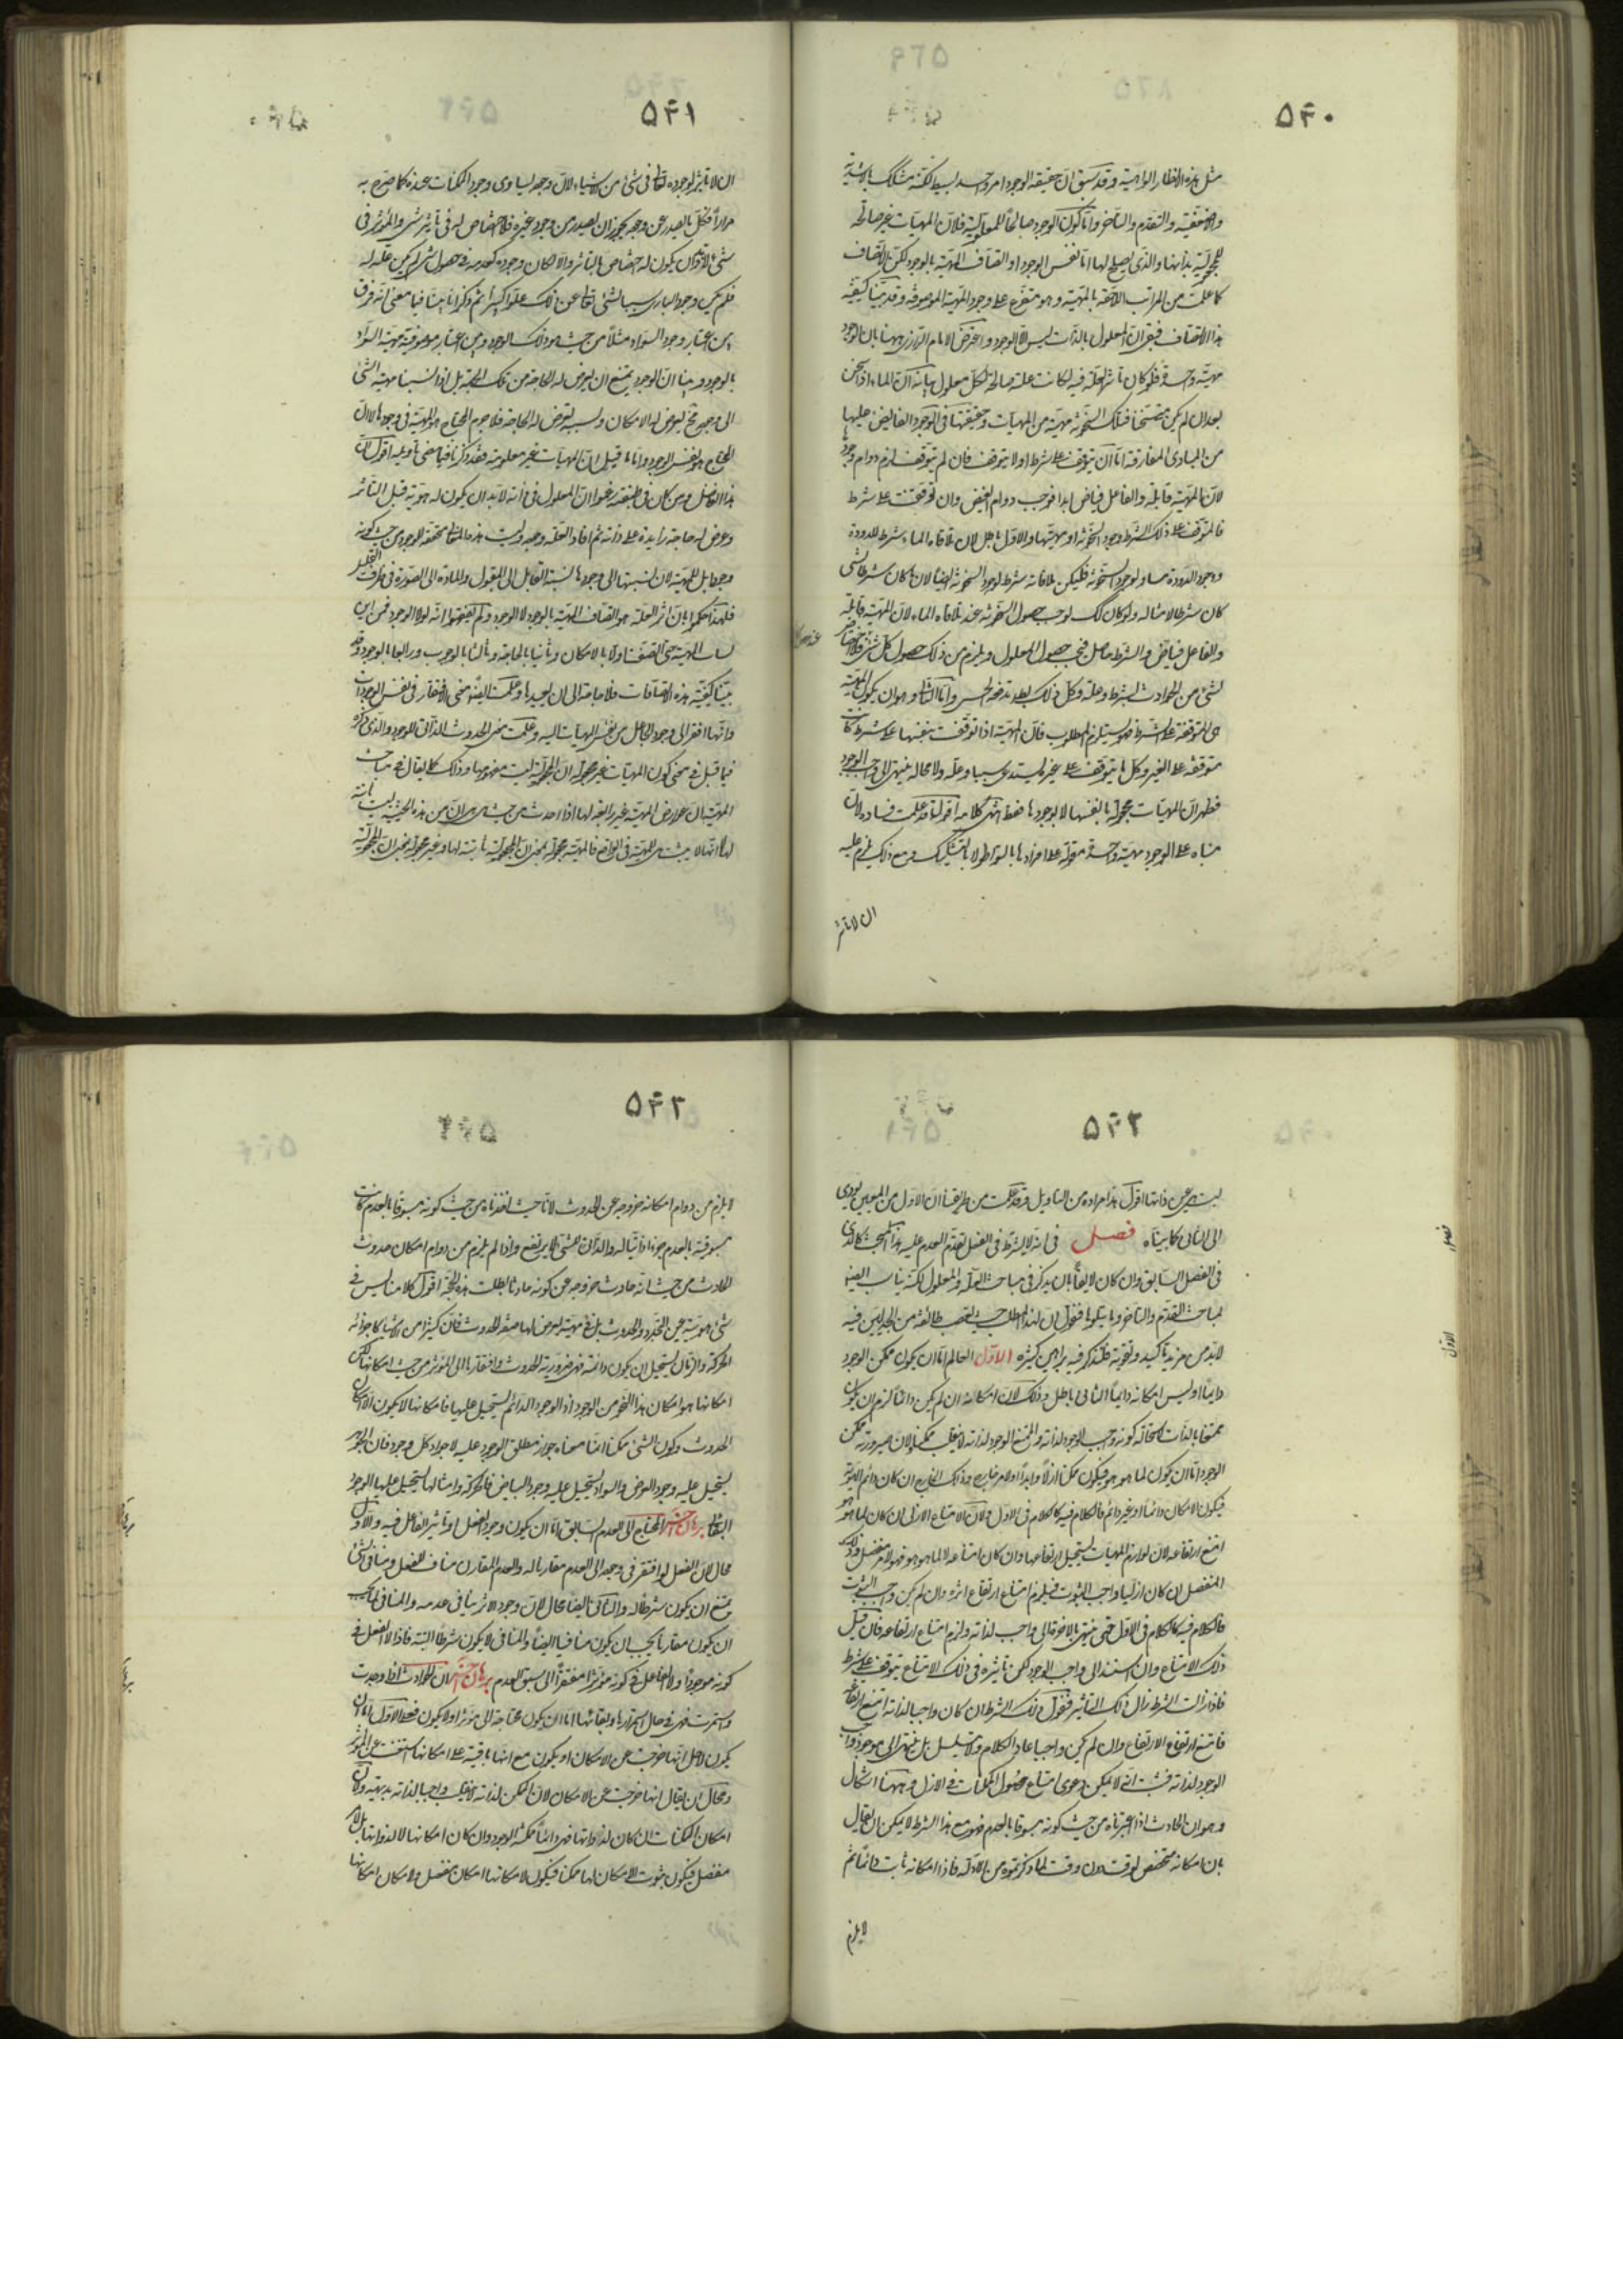 ۵۴۰
مثل هذه الانظار الواهية و قد سبق ان حقيقة الوجود امر واحد بسيط لكنه متشكك بالاشدية
والاضعفية والتقدم والتاخر وانما كون الوجود صالحا للمعلولية فلان المهيات غير صالحة
للمجعولية بذاتها والذى يصلح لها اما نفس الوجود او اتصاف المهية بالوجود لكن الاتصاف
كما علمت من المراتب اللاحقة بالمهية و هو متفرع على وجود المهية الموصوفة و قد بينا كيفية
هذا الاتصاف فبقى ان المعلول بالذات ليس الا الوجود و اعترض الامام الرازى ههنا بان الوجود
مهية واحدة فلو كان تاثير العلة فيه لكانت علة صالحة لكل معلول بيانه ان الماء اذا سخن
بعد ان لم يكن متسخنا فتلك السخونة مهية من المهيات و حقيقتها فى الوجود الفايض عليها
من المبادى المفارقة اما ان يتوقف على شرط او لا يتوقف فان لم يتوقف لزم دوام وجودها
لان المهية قابلة والفاعل فياض ابدا فوجب دوام الفيض وان توقفت على شرط
فالمتوقف على ذلك الشرط وجود السخونة او مهيتها والاول باطل لان ملاقاة الماء شرط للبرودة
و وجود البرودة مساو لوجود السخونة فليكن ملاقاته شرط لوجود السخونة ايضا لان ما كان شرطا لشئ
كان شرطا لامثاله ولو كان كك لوجب حصول السخونة عند ملاقاة الماء لان المهية قابلة
والفاعل فياض والشرط حاصل فيجب حصول المعلول و يلزم من ذلك حصول كل شئ فلا اختصاص
لشئ من الحوادث بشرط وعلة وكل ذلك بط يدفعه الحس واما الثانى و هو ان يكون المهية
هى المتوقفة على الشرط فهو يستلزم المطلوب فان المهية اذا توقفت بنفسها على شرط كانت
متوقفة على الغير وكل ما يتوقف على غيره يستدعى سببا وعلة ولا محالة ينتهى الى واجب الوجود
فظهر ان المهيات مجعولة بانفسها لا بوجودها فقط انتهى كلامه اقول قد علمت فساده لان
مبناه على الوجود مهية واحدة مقولة على افرادها بالتواطو لا بالتشكيك و مع ذلك يلزم عليه
ان لا تاثير
۵۴۱
ان لا تاثير لوجوده تعالى فى شئ من الاشياء لان وجوده يساوى وجود الممكنات عنده كما صرح به
مرارا فكل ما يصدر عن وجوده يجوز ان يصدر من وجود غيره فلا اختصاص له فى تاثير شئ والمؤثر فى
شئ لابد وان يكون له اختصاص بالتاثير والا لكان وجوده كعدمه فى حصول شئ لم يكن علة له
فلم يكن وجود البارى سببا لشئ تعالى عن ذلك علوا كبيرا ثم ذكر انا بينا فيما مضى انه فرق
بين اعتبار وجود السواد مثلا من حيث هو ذلك الوجود و بين اعتبار موصوفية مهية السواد
بالوجود و بينا ان الوجود يمتنع ان يعرض له الحاجة من تلك الجهة بل اذا نسبنا مهية الشئ
الى وجوده فح يعرض له الامكان و بسببه يعرض له الحاجة فلا جرم المحتاج هو المهية فى وجودها لا ان
المحتاج هو نفس الوجود و اما ما قيل ان المهيات غير معلومة فقد ذكرنا فيما مضى تاويله اقول كان
هذا الفاضل و من كان فى طبقته زعموا ان المعلول فى ذاته لابد ان يكون له هوية قبل التاثير
و عرض له حاجة زايدة على ذاته ثم افاد العلة وجوده وليست هذه الحالة متحققة الوجود من حيث كونه
وجودا بل للمهية لان نسبتها الى وجودها نسبة القابل الى المقبول والمادة الى الصورة فى ظرف التحليل
فلهذا حكموا بان اثر العلة هو اتصاف المهية بالوجود لا الوجود و لم يفقهوا انه لولا الوجود فمن اين
لسان المهية حتى اتصفت اولا بالامكان وثانيا بالحاجة و ثالثا بالوجوب و رابعا بالوجود وقد
بينا كيفية هذه الاتصافات فلا حاجة الى ان نعيدها وعلمت ايضا معنى الافتقار فى نفس الوجودات
وانها افقر الى وجود الجاعل من نفس المهيات اليه وعلمت معنى الحدوث الذاتى للوجود والذى ذكره
فيما قبل فى معنى كون المهيات غير مجعولة ان المجعولية ليست مفهومها و ذلك كما يقال فى مباحث
المهية ان عوارض المهية غير رافعة لها اذا اخذت من حيث هى هى لان من هذه الحيثية ليست ثابتة
لها لا انها لا يثبت للمهية فى الواقع فالمهية مجعولة بمعنى ان المجعولية ثابتة لها و غير مجعولة بمعنى ان المجعولية
۵۴۲
ليست عين ذاتها اقول هذا مراده من التاويل وقد علمت من طريقتنا ان الاول من المعنيين يؤدى
الى الثانى كما بيناه فصل فى انه لا يشترط فى الفعل تقدم العدم عليه هذا المبحث كالذى
فى الفصل السابق وان كان لايقا بان يذكر فى مباحث العلة والمعلول لكنه يناسب ايضا
لمباحث التقدم والتاخر وما يتلوهما فنقول ان لهذا المطلب حيث يتعصب طائفة من الجدليين فيه
لابد من مزيد تاكيد و تقوية فلنذكر فيه براهين كثيرة الاول العالم اما ان يكون ممكن الوجود
دايما او ليس امكانه دايما الثانى باطل و ذلك لان امكانه ان لم يكن دائما لزم ان يكون
ممتنعا بالذات لاستحالة كونه واجب الوجود لذاته والممتنع الوجود لذاته لا ينقلب ممكنا لان صيرورته ممكن
الوجود اما ان يكون لما هو هو فيكون ممكنا ازلا وابدا او لامر خارج و ذلك الخارج ان كان دائم الهوية
فيكون الامكان دائما او غير دائم فالكلام فيه كالكلام فى الاول و لان الامتناع الازلى ان كان لما هو هو
امتنع ارتفاعه لان لوازم المهيات يستحيل ارتفاعها وان كان امتناعه لا لما هو هو فهو لامر منفصل و ذلك
المنفصل ان كان ازليا واجب الثبوت فيلزم امتناع ارتفاع اثره وان لم يكن واجب الثبوت
فالكلام فيه كالكلام فى الاول حتى ينتهى بالاخرة الى واجب لذاته ولزم امتناع ارتفاعه فان قيل
ذلك الامتناع وان استند الى واجب الوجود لكن تاثيره فى ذلك الامتناع يتوقف على شرط
فاذا زالت الشرط زال ذلك التاثير فنقول ذلك الشرط ان كان واجبا لذاته امتنع ارتفاعه
فامتنع ارتفاع الارتفاع وان لم يكن واجبا عاد الكلام ولا يتسلسل بل ينتهى الى موجود واجب
الوجود لذاته فثبت انه لا يمكن دعوى امتناع حصول الممكنات فى الازل و ههنا اشكال
و هو ان الحادث اذا اعتبرناه من حيث كونه مسبوقا بالعدم فهو مع هذا الشرط لا يمكن ان يقال
بان امكانه متخصص بوقت دون وقت لما ذكرتموه من الادلة فاذا امكانه ثابت دائما ثم
لا يلزم
۵۴۳
لا يلزم من دوام امكانه خروجه عن الحدوث لانا حيث اخذناه من حيث كونه مسبوقا بالعدم كانت
مسبوقيته بالعدم جزءا ذاتيا له والذاتى للشئ لا يرتفع واذا لم يلزم من دوام امكان حدوث
الحادث من حيث انه حادث خروجه عن كونه حادثا بطلت هذه الحجة اقول كلامنا ليس فى
شئ هويته عين التجدد والحدوث بل فى مهية يعرض لها صفة الحدوث فان كثيرا من الاشياء كاجزاء
الحركة والزمان يستحيل ان يكون دائمة فهى ضرورية الحدوث و افتقارها الى المؤثر من حيث امكانها لكن
امكانها هو امكان هذا النحو من الوجود اذ الوجود الدائم يستحيل عليها فامكانها لا يكون الا امكان
الحدوث و كون الشئ ممكنا انما معناه جواز مطلق الوجود عليه لا جواز كل وجود فان الجوهر
يستحيل عليه وجود العرض والسواد يستحيل عليه وجود البياض فالحركة وامثالها يستحيل عليها الوجود
البقائى برهان آخر المحتاج الى العدم السابق اما ان يكون وجود الفعل او تاثير الفاعل فيه والاول
محال لان الفعل لو افتقر فى وجوده الى العدم مقارنا له والعدم المقارن مناف للفعل و منافى الشئ
يمتنع ان يكون شرطا له والثانى ايضا محال لان وجود الاثر ينافى عدمه والمنافى لما يجب
ان يكون مقارنا يجب ان يكون منافيا ايضا والمنافى لا يكون شرطا البتة فاذا لا الفعل فى
كونه موجودا ولا الفاعل فى كونه مؤثرا مفتقرا الى سبق العدم برهان آخر ان الحوادث اذا وجدت
واستمرت فهى فى حال استمرارها وبقائها اما ان يكون محتاجة الى مؤثر او لا يكون فعلى الاول اما ان
يكون لاجل انها خرجت عن الامكان او يكون مع انها باقية على امكانها استغنت عن المؤثر
و محال ان يقال انها خرجت عن الامكان لان الممكن لذاته لا ينقلب واجبا لذاته بديهة وكان
امكان الممكنات ان كان لذواتها فهى دائما ممكنة الوجود وان كان امكانها لا لذواتها بل لامر
منفصل فيكون ثبوت الامكان لها ممكنا فيكون لامكانها امكان منفصل ولامكان امكانها